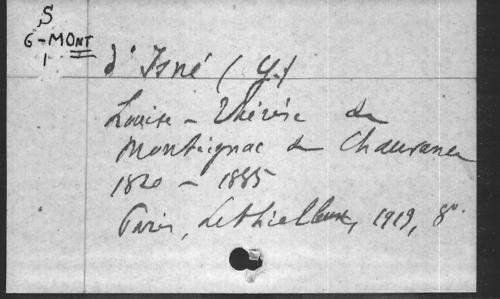 S
G-MONT
1
d'Isné (Y.)
Louise-Thérèse de
Montaignac de Chauvance
1820-1885
Paris, Lethielleux, 1919, 8°